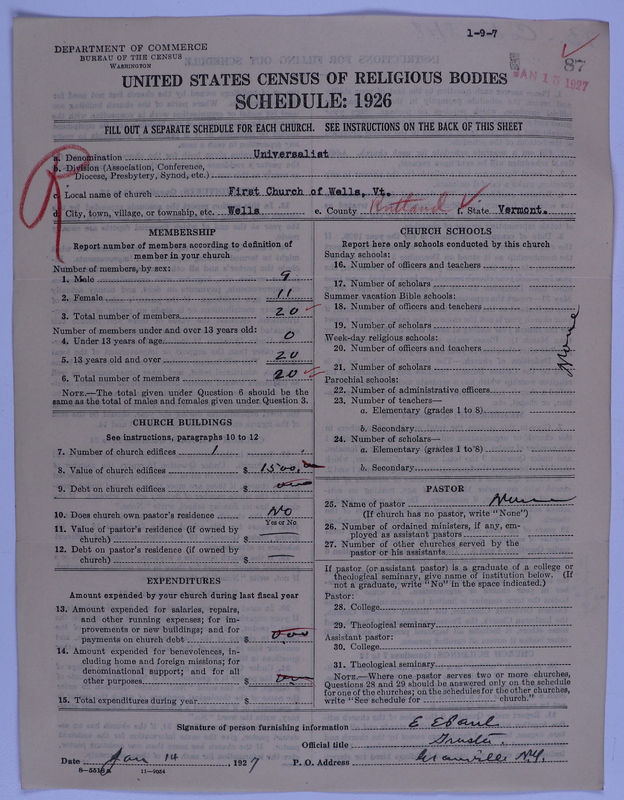 1-9-7
DEPARTMENT OF COMMERCE
BUREAU OF THE CENSUS
WASHINGTON
87
JAN 15 1927
UNITED STATES CENSUS OF RELIGIOUS BODIES
SCHEDULE: 1926
FILL OUT A SEPARATE SCHEDULE FOR EACH CHURCH. SEE INSTRUCTIONS ON THE BACK OF THIS SHEET
a. Denomination Universalist
b. Division (Association, Conference,
Diocese, Presbytery, Synod, etc.)
c. Local name of church First Church of Wells, Vt.
d. City, town, village, or township, etc. Wells e. County Rutland f. State Vermont.
MEMBERSHIP
Report number of members according to definition of
member in your church
Number of members, by sex:
1. Male 9
2. Female 11
3. Total number of members 20
Number of members under and over 13 years old:
4. Under 13 years of age 0
5. 13 years old and over 20
6. Total number of members 20
NOTE.—The total given under Question 6 should be the
same as the total of males and females given under Question 3.
CHURCH BUILDINGS
See instructions, paragraphs 10 to 12
7. Number of church edifices 1
8. Value of church edifices $ 1500.
9. Debt on church edifices $
10. Does church own pastor's residence No
Yes or No
11. Value of pastor's residence (if owned by
church) $
12. Debt on pastor's residence (if owned by
church) $
EXPENDITURES
Amount expended by your church during last fiscal year
13. Amount expended for salaries, repairs,
and other running expenses; for im-
provements or new buildings; and for
payments on church debt $ 0.00
14. Amount expended for benevolences, in-
cluding home and foreign missions; for
denominational support; and for all
other purposes $
15. Total expenditures during year $
CHURCH SCHOOLS
Report here only schools conducted by this church
Sunday schools:
16. Number of officers and teachers
17. Number of scholars
Summer vacation Bible schools:
18. Number of officers and teachers
19. Number of scholars
Week-day religious schools:
20. Number of officers and teachers
21. Number of scholars
None
Parochial schools:
22. Number of administrative officers
23. Number of teachers—
a. Elementary (grades 1 to 8)
b. Secondary
24. Number of scholars—
a. Elementary (grades 1 to 8)
b. Secondary
PASTOR
25. Name of pastor None
(If church has no pastor, write "None")
26. Number of ordained ministers, if any, em-
ployed as assistant pastors
27. Number of other churches served by the
pastor or his assistants
If pastor (or assistant pastor) is a graduate of a college or
theological seminary, give name of institution below. (If
not a graduate, write "No" in the space indicated.)
Pastor:
28. College
29. Theological seminary
Assistant pastor:
30. College
31. Theological seminary
NOTE.—Where one pastor serves two or more churches,
Questions 28 and 29 should be answered only on the schedule
for one of the churches; on the schedules for the other churches,
write "See schedule for church."
Signature of person furnishing information E E Paul
Official title Trustee
Date Jan 14 1927 P. O. Address Granville N.Y.
8-551 11-9054